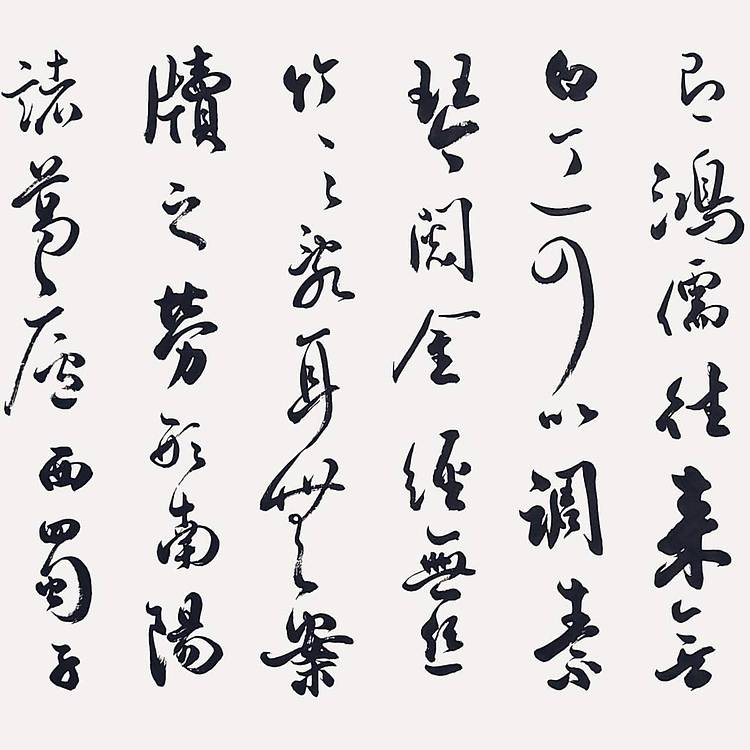 有鴻儒往來無
白丁可以調素
琴閱金經無絲
竹之亂耳無案
牘之勞形南陽
諸葛廬西蜀子